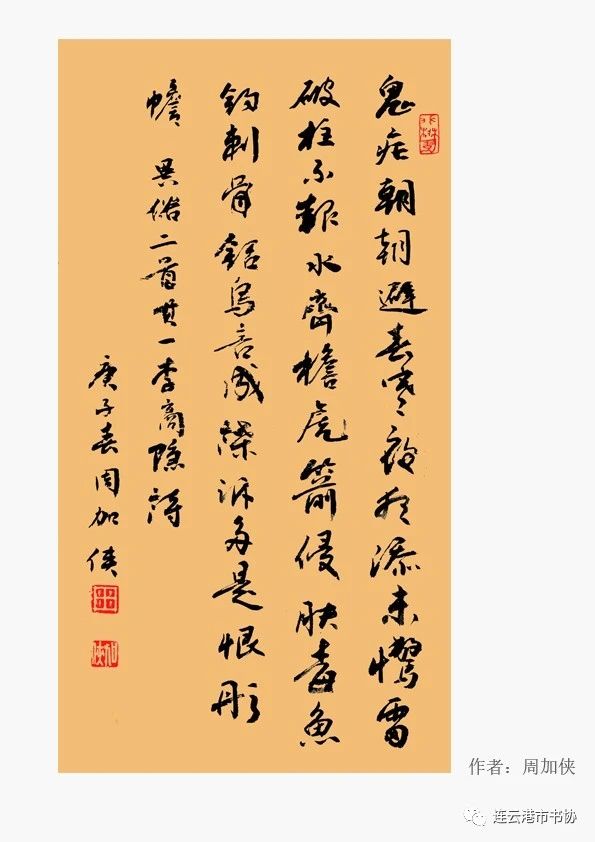 鬼疟朝朝避春寒夜夜添未驚雷
破柱不報水齊檐虎箭侵肤毒魚
鈎刺骨銛鳥言成諜訴多是恨彤
幨 異俗二首其一李商隐詩
庚子春周加侠
作者：周加侠
连云港市书协